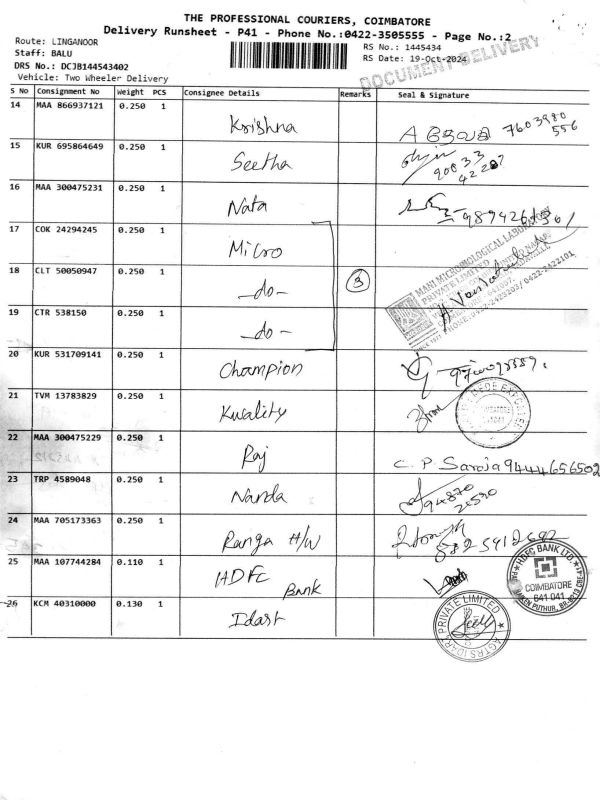 THE PROFESSIONAL COURIERS, COIMBATORE
Delivery Runsheet - P41 - Phone No.:0422-3505555 - Page No.:2
Route: LINGANOOR
Staff: BALU
DRS No.: DCJB144543402
Vehicle: Two Wheeler Delivery
RS No.: 1445434
RS Date: 19-Oct-2024
DOCUMENT DELIVERY
S No Consignment No Weight PCS Consignee Details Remarks Seal & Signature
14 MAA 866937121 0.250 1
Krishna
7603980
556
15 KUR 695864649 0.250 1
Seetha
90033
16 MAA 300475231 0.250 1
Nata
17 COK 24294245 0.250 1
Micro
MANI MICROBIOLOGICAL LABORATORY
PRIVATE LIMITED
18 CLT 50050947 0.250 1
-do-
3
19 CTR 538150 0.250 1
-do-
20 KUR 531709141 0.250 1
Champion
21 TVM 13783829 0.250 1
Kwality
COIMBATORE
22 MAA 300475229 0.250 1
Raj
C. P. Saroja 9444656502
23 TRP 4589048 0.250 1
Nanda
94870
24 MAA 705173363 0.250 1
Ranga H/W
25 MAA 107744284 0.110 1
HDFC Bank
HDFC BANK LTD.
COIMBATORE
641 041
26 KCM 40310000 0.130 1
Idast
PRIVATE LIMITED